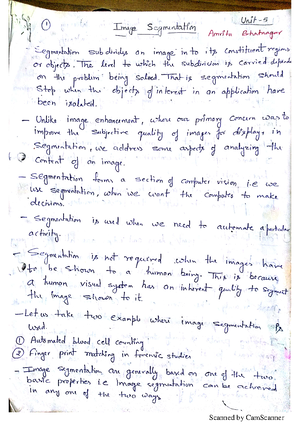 ① Image Segmentation Unit-5
Amrita Bhatnagar
- Segmentation subdivides an image in to its constituent regions
or objects. The level to which the subdivision is carried depends
on the problem being solved. That is segmentation should
stop when the objects of interest in an application have
been isolated.
- Unlike image enhancement, when our primary concern was to
improve the subjective quality of images for display, in
Segmentation, we address some aspects of analyzing the
content of an image.
- Segmentation forms a section of computer vision, i.e we
use segmentation, when we want the computer to make
decisions.
- Segmentation is used when we need to automate a particular
activity.
- Segmentation is not required when the images have
to be shown to a human being. This is because
a human visual system has an inherent quality to segment
the image shown to it.
- Let us take two example where image segmentation is
used.
① Automated blood cell counting
② Finger print matching in forensic studies
- Image segmentation are generally based on one of the two
basic properties i.e Image segmentation can be achieved
in any one of the two ways
Scanned by CamScanner